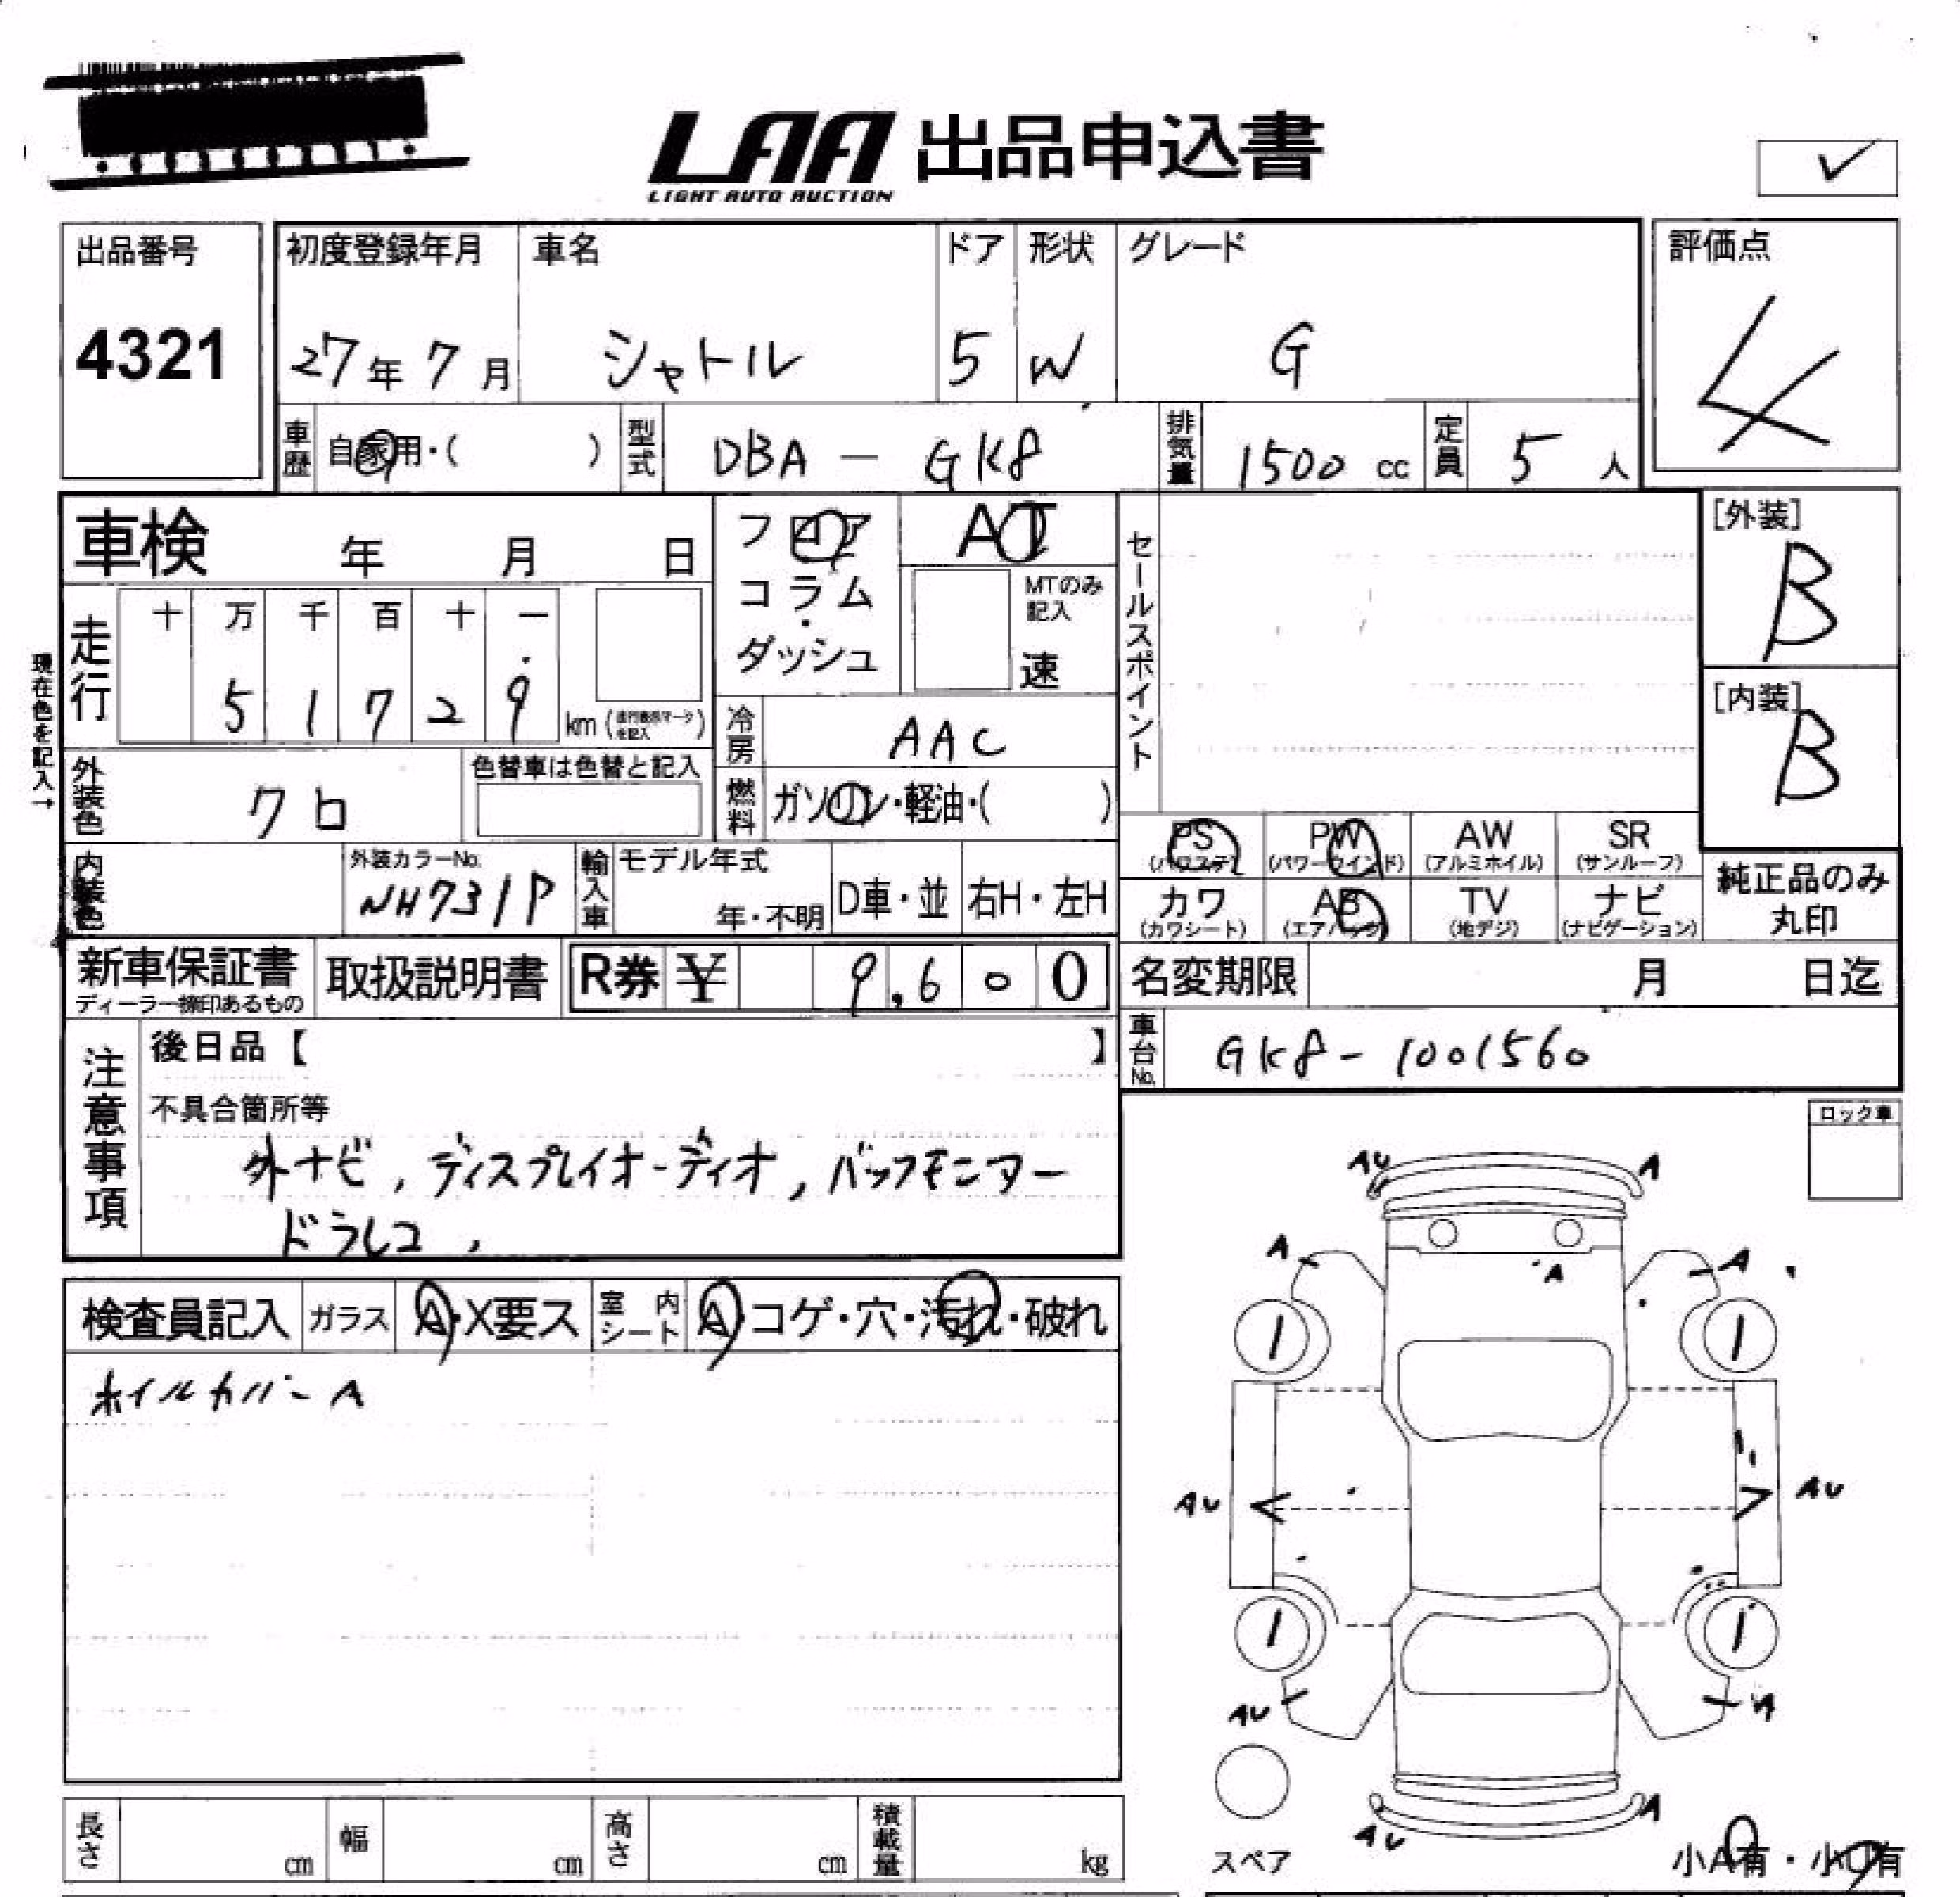 LAA 出品申込書
LIGHT AUTO AUCTION
出品番号 初度登録年月 車名 ドア 形状 グレード 評価点
4321 27年 7月 シャトル 5 W G 4
車歴 自家用・( ) 型式 DBA - GK8 排気量 1500 cc 定員 5 人
車検 年 月 日
フロア
コラム・
ダッシュ
AT
MTのみ
記入
速
セールスポイント
[外装]
B
[内装]
B
現在色を記入→
走行 十 万 千 百 十 一
5 1 7 2 9 km (走行表示マークを記入)
冷房 AAC
外装色 クロ 色替車は色替と記入
燃料 ガソリン・軽油・( )
PS PW AW SR
(パワステ) (パワーウインド) (アルミホイル) (サンルーフ)
カワ AB TV ナビ
(カワシート) (エアバック) (地デジ) (ナビゲーション)
純正品のみ
丸印
内装色 外装カラーNo. NH731P 輸入車 モデル年式 年・不明 D車・並 右H・左H
新車保証書 取扱説明書 R券 ¥ 9,600
ディーラー捺印あるもの
名変期限 月 日迄
車台No. GK8-1001560
注意事項
後日品【 】
不具合箇所等
外ナビ, ディスプレイオーディオ, バックモニター
ドラレコ,
ロック車
検査員記入 ガラス A・X要ス 室内シート A・コゲ・穴・汚れ・破れ
ホイルカバーA
AU A
A A A
1 1
AU AU
1 1
AU A
AU A
スペア
小A有・小U有
長さ cm 幅 cm 高さ cm 積載量 kg